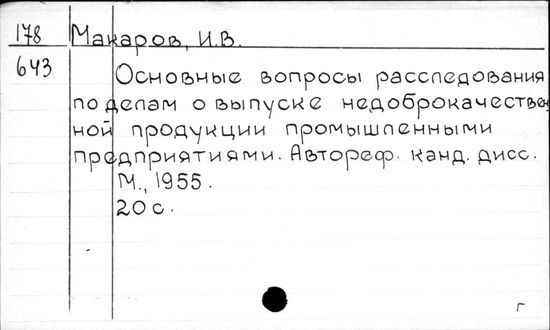 178 Макаров, И.В.
643 Основные вопросы расследования
по делам о выпуске недоброкачествен-
ной продукции промышленными
предприятиями. Автореф. канд. дисс.
М., 1955.
20 с.
г